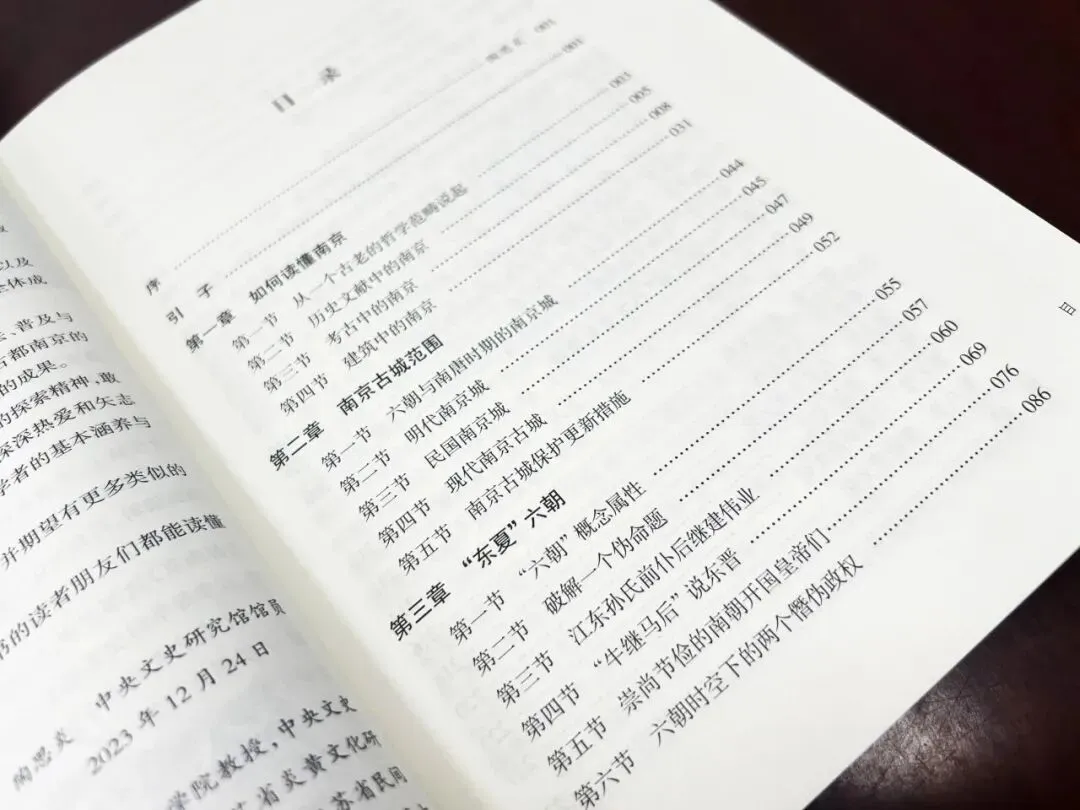 以及
体成
、普及与
古都南京的
的成果。
的探索精神,敢
深深热爱和矢志
学者的基本涵养与
并期望有更多类似的
书的读者朋友们都能读懂
陶思炎 中央文史研究馆馆员
2023 年 12 月 24 日
学院教授,中央文史
苏省炎黄文化研
苏省民间
目 录
序 …… 陶思炎 001
引 子 …… 001
第一章 如何读懂南京
第一节 从一个古老的哲学范畴说起 …… 003
第二节 历史文献中的南京 …… 005
第三节 考古中的南京 …… 008
第四节 建筑中的南京 …… 031
第二章 南京古城范围
第一节 六朝与南唐时期的南京城 …… 044
第二节 明代南京城 …… 045
第三节 民国南京城 …… 047
第四节 现代南京古城 …… 049
第五节 南京古城保护更新措施 …… 052
第三章 “东夏”六朝
第一节 “六朝”概念属性 …… 055
第二节 破解一个伪命题 …… 057
第三节 江东孙氏前仆后继建伟业 …… 060
第四节 “牛继马后”说东晋 …… 069
第五节 崇尚节俭的南朝开国皇帝们 …… 076
第六节 六朝时空下的两个僭伪政权 …… 086
目